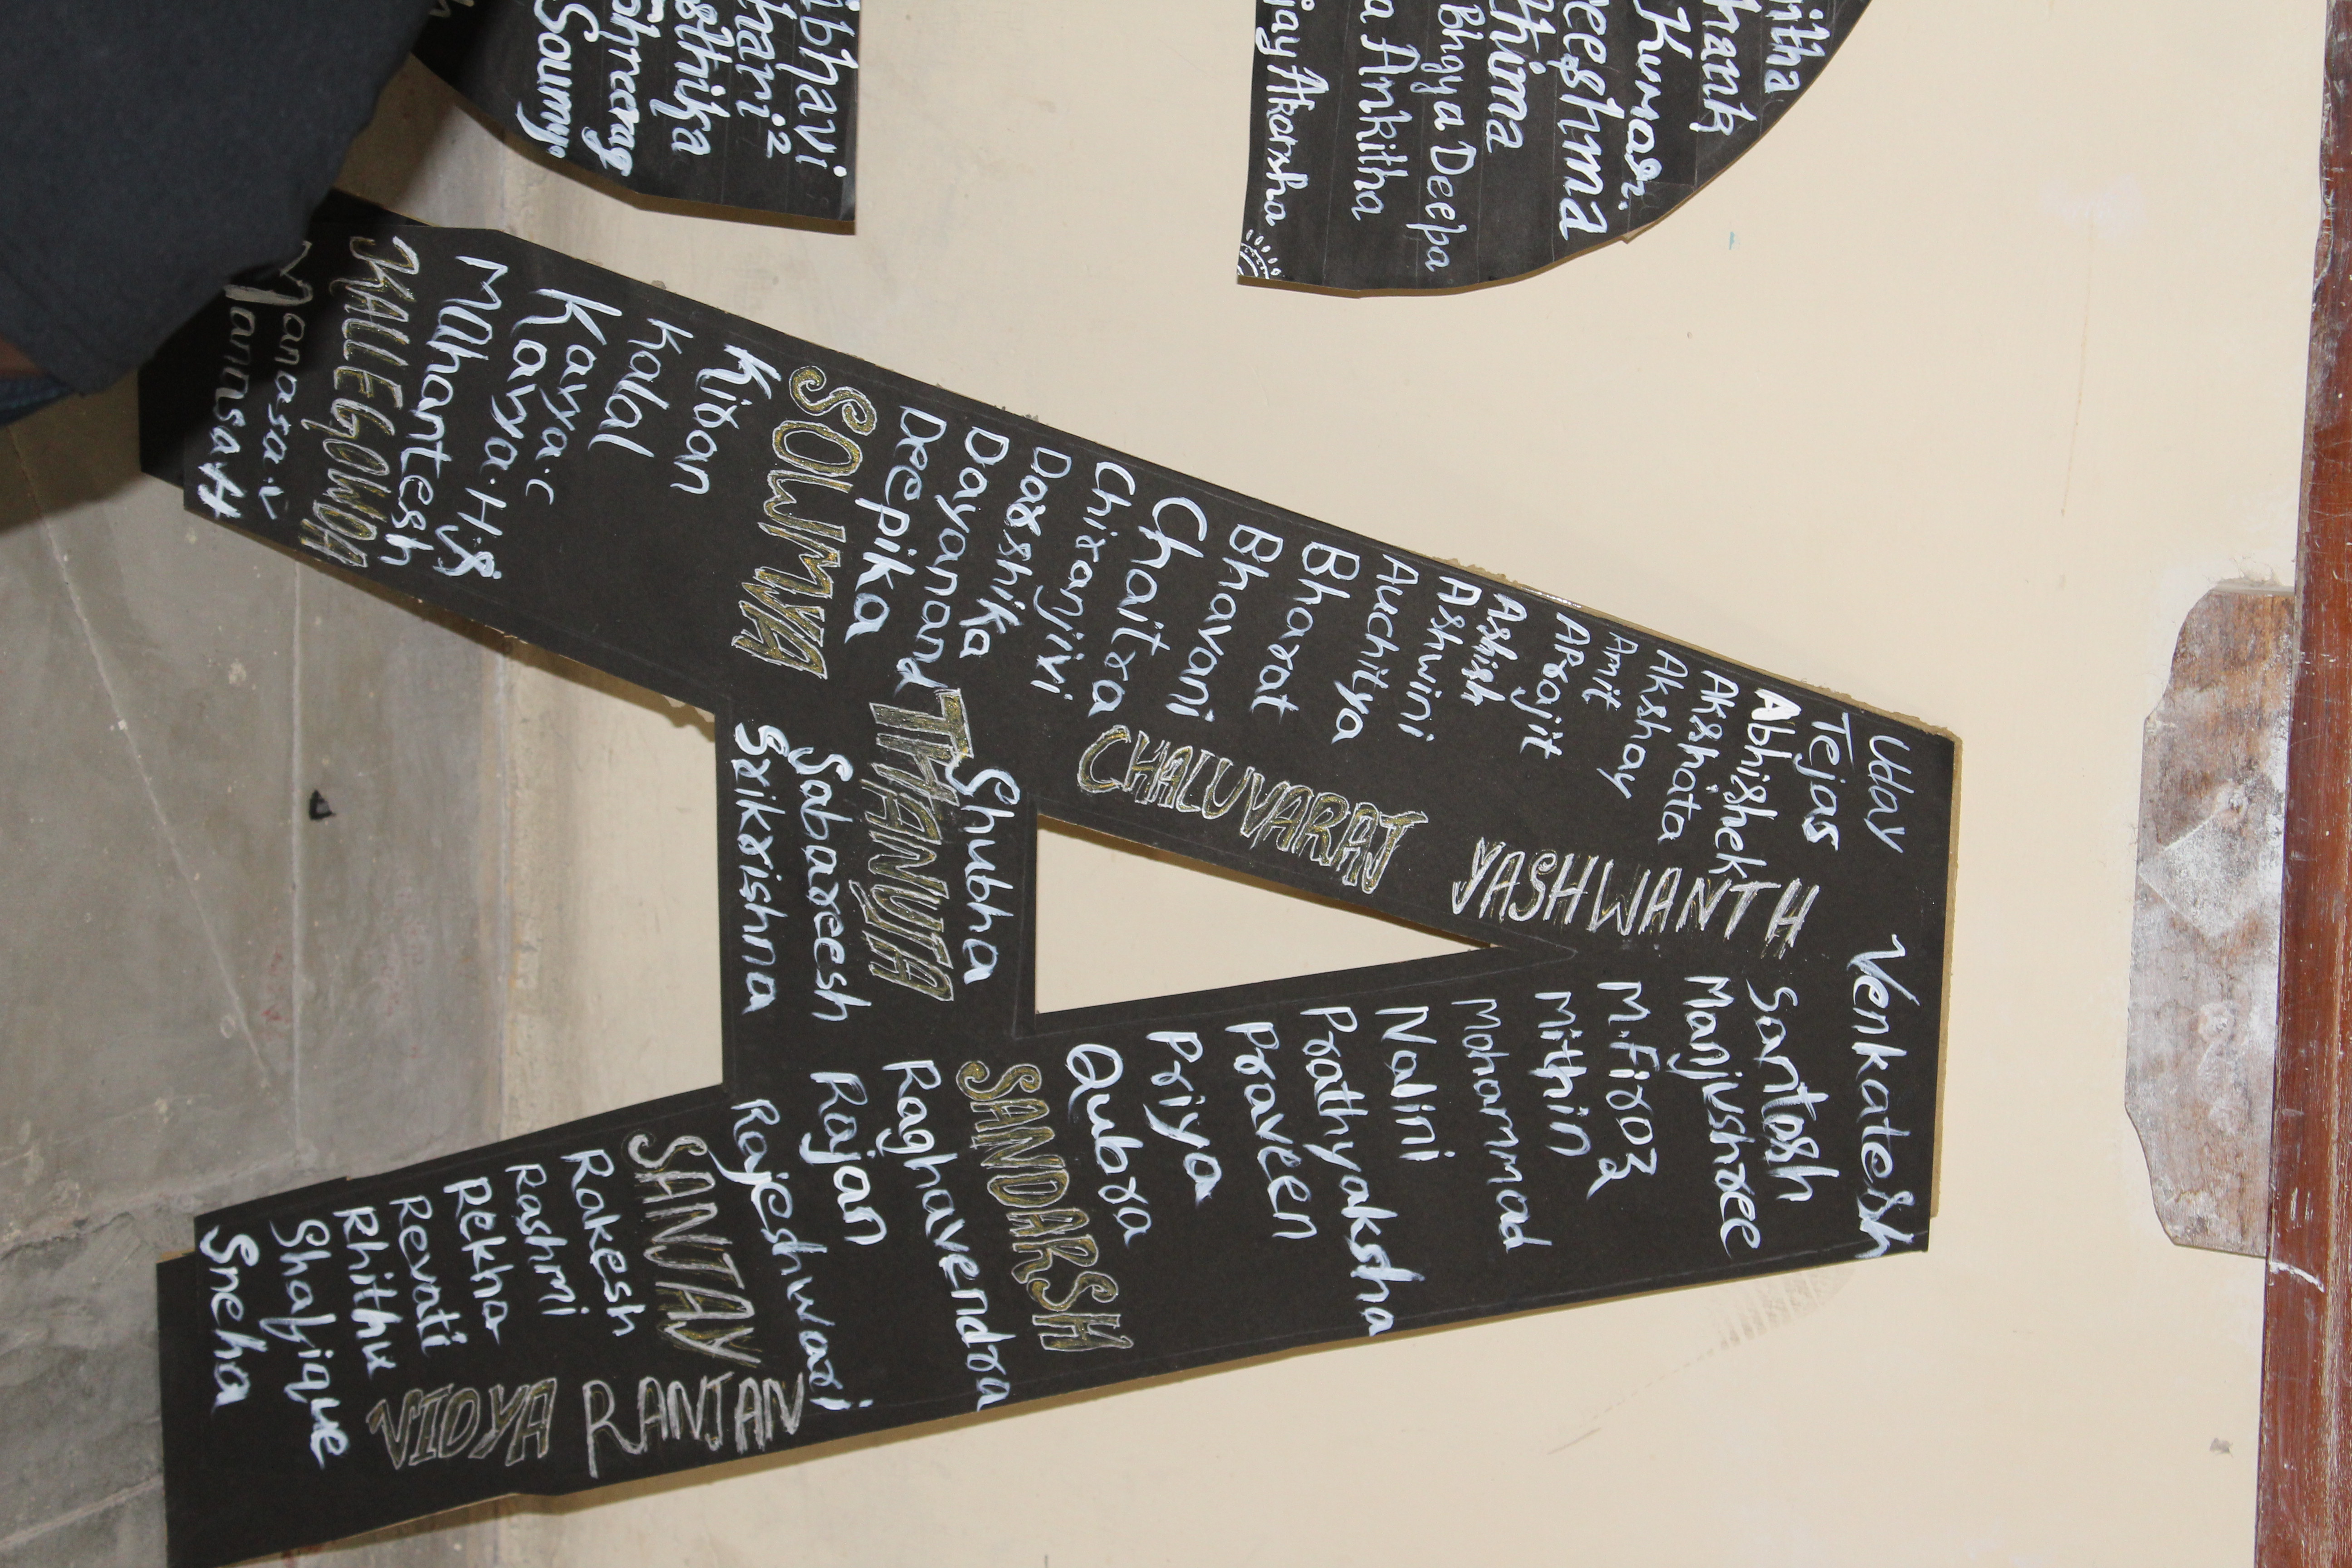 Kumar.
Bhgya Deepa
Ankitha
Akarsha
Uday
Tejas
Abhishek
Akshata
Akshay
Amit
APrajit
Ashish
Ashwini
Auchitya
Bharat
Bhavani
Chaitra
Chiranjivi
Darshika
Dayanand
Deepika
SOWMYA
Kiran
Kalal
Kavya.C
Kavya.H.S
MAhantesh
KALLEGOWDA
Manasa.V
Manasa H
YASHWANTH
CHALUVARAJ
Shubha
THANUJA
Sabareesh
Srikrishna
Venkatesh
Santosh
Manjushree
M.Firoz
Mithin
Mohammad
Nalini
Prathyaksha
Praveen
Priya
Qubra
SANDARSH
Raghavendra
Rajan
Rajeshwari
SANJAY
Rakesh
Rashmi
Rekha
Revati
Rhithu
Shafique
Sneha
VIDYA RANJAN